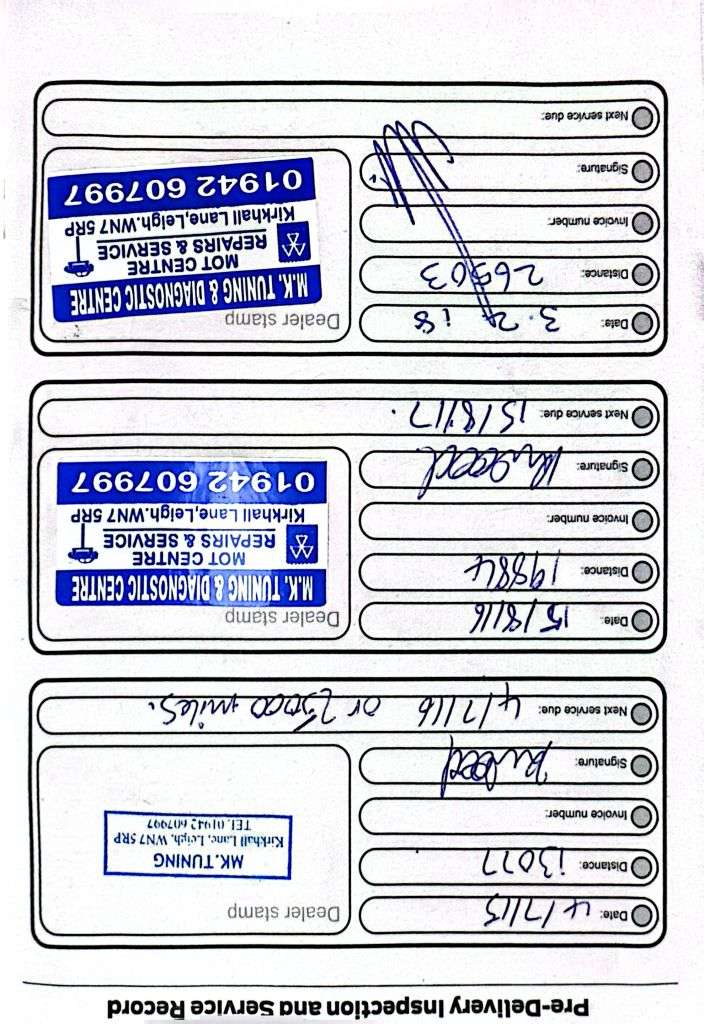 Pre-Delivery Inspection and Service Record
Date: 4/7/15
Distance: 13077
Invoice number:
Signature:
Dealer stamp
MK.TUNING
Kirkhall Lane, Leigh, WN7 5RP
TEL 01942 607997
Next service due: 4/7/16 or 25000 miles.
Date: 15/8/16
Distance: 19884
Invoice number:
Signature:
Dealer stamp
M.K. TUNING & DIAGNOSTIC CENTRE
MOT CENTRE
REPAIRS & SERVICE
Kirkhall Lane,Leigh.WN7 5RP
01942 607997
Next service due: 15/8/17.
Date: 3.2.18
Distance:
Invoice number:
Signature:
Dealer stamp
M.K. TUNING & DIAGNOSTIC CENTRE
MOT CENTRE
REPAIRS & SERVICE
Kirkhall Lane,Leigh.WN7 5RP
01942 607997
Next service due: